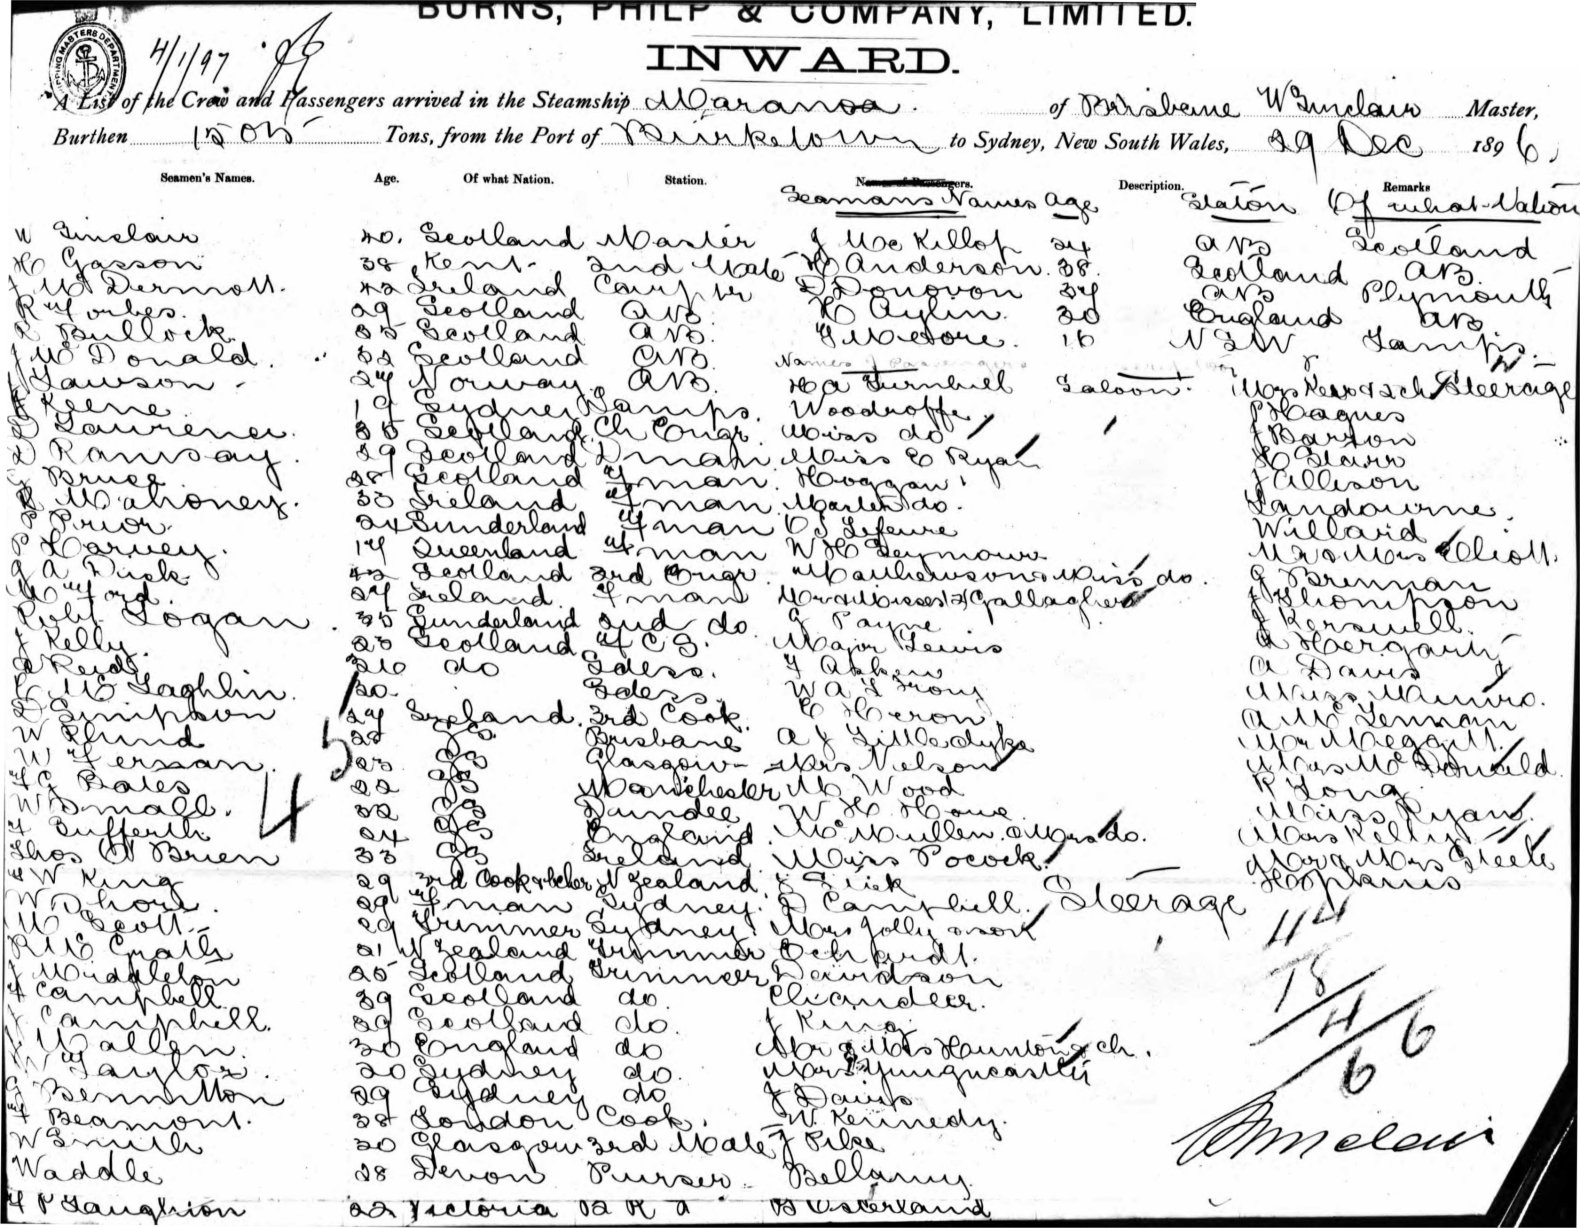 BURNS, PHILP & COMPANY, LIMITED.
INWARD.
SHIPPING MASTERS DEPARTMENT
4/1/97
A List of the Crew and Passengers arrived in the Steamship Maranoa of Brisbane W Sinclair Master,
Burthen 1505 Tons, from the Port of Burketown to Sydney, New South Wales, 29 Dec 1896
Seamen's Names. Age. Of what Nation. Station. Names of Passengers. Description. Remarks
Seamans Names Age Station Of what Nation
W Sinclair 40. Scotland Master J McKillop 24 AB Scotland
H Gasson 38 Kent 2nd Mate H Anderson 38. Scotland AB
J McDermott. 42 Ireland D Donovon 34 AB Plymouth
R Forbes. 29 Scotland AB H Aylin 30 England AB
R Bullock 35 Scotland AB Moore. 16 NSW Lamps.
J McDonald. 32 Scotland AB Names of Passengers
Lawson 24 Norway AB. HA Turnbull Saloon Mrs Kerr & 2 ch Steerage
Keene 19 Sydney Lamps. Woodroffe. Hagues
Laurence. 35 Scotland Ch Engr. Miss do J Barron
D Ramsay. 29 Scotland Dman Miss E Ryan H Starr
Bruce 28 Scotland Fman Hoggan J Allison
Mahoney. 33 Ireland Fman Master do. Landourne.
Prior. 24 Sunderland Fman Lefeuvre Willard
Harvey. 17 Queenland Fman W H Seymour Mr & Mrs Elliott.
A Dick 42 Scotland 3rd Engr. Mathewson & Miss do. J Brennan
Ford. 24 Ireland Fman Gallagher J Thompson
Robt Logan 35 Sunderland 2nd do G Payne J Kerswell.
J Kelly. 23 Scotland Major Lewis A Hegarty
Reid 26 do Sdess. A Davis
McLaghlin. 30. Sdess. Miss Munro.
D Simpson 24 Ireland. 3rd Cook. C Heron A McLennan
W 25 Brisbane A J Littledyke Mr Meggitt.
W Fersan. 23 Glasgow Mrs Nelson Mrs McDonald.
F G Bates 22 Manchester M Wood R Long
W Small. 32 Dundee W H Howe Miss Ryan
24 England McMullen & Mrs do. Mrs Kelly
Thos O'Brien 33 Ireland Miss Pocock. Mr & Mrs Steele
W King 29 3rd Cook N Zealand Hopkins
W Shore. 29 Fman Sydney. D Campbell. Steerage
Scott. 29 Trimmer Sydney. Mrs Jolly & son
R McGrath 21 N Zealand Trimmer
J Middleton 25 Scotland Trimmer Davidson
Campbell. 39 Scotland do.
Campbell. 29 Scotland do. J King
Mallen. 30 England do Mr & Mrs ch.
Taylor. 20 Sydney do. Mrs
Bennitton 29 Sydney do J Davis
Beamont. 38 London Cook. W. Kennedy.
W Smith 30 Glasgow 3rd Mate J Pike
Waddle 28 Devon Purser Bellamy
22 Victoria B Osterland
5
4
44
18
4
6
6
W Sinclair